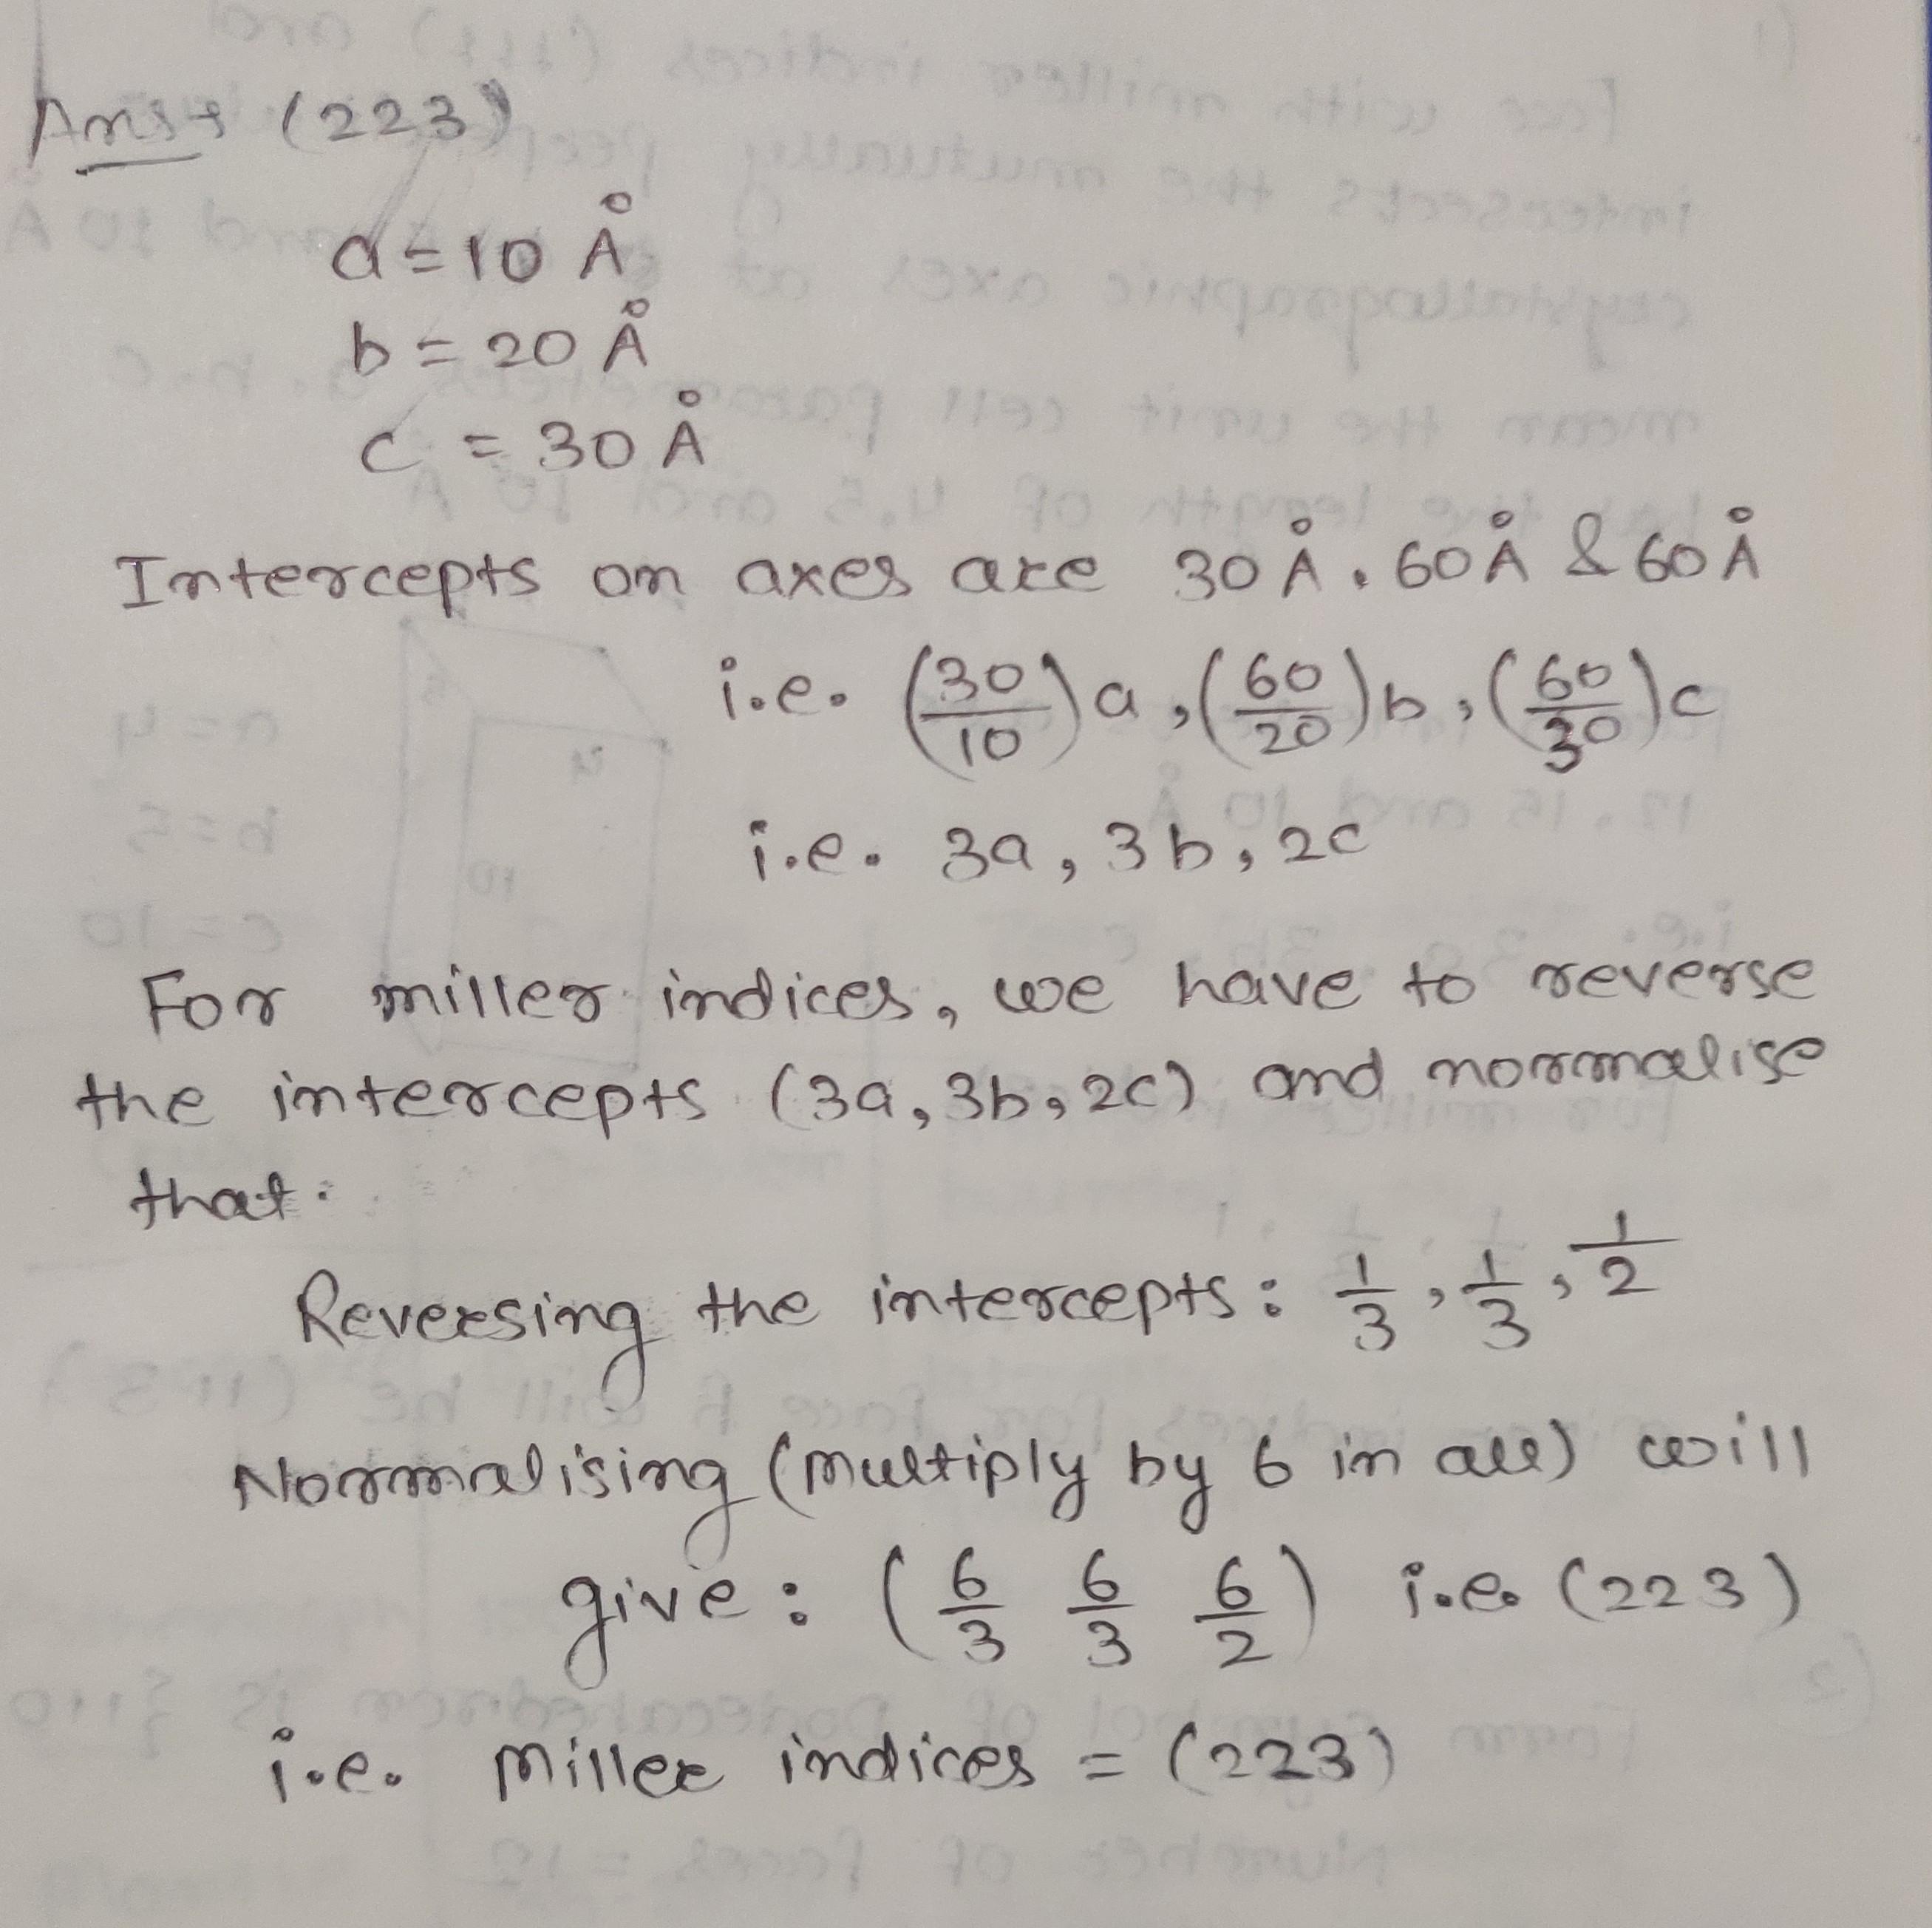 Ans: (223)
a = 10 Å
b = 20 Å
c = 30 Å
Intercepts on axes are 30 Å, 60 Å & 60 Å
i.e. (30/10)a, (60/20)b, (60/30)c
i.e. 3a, 3b, 2c
For miller indices, we have to reverse
the intercepts (3a, 3b, 2c) and normalise
that.
Reversing the intercepts: 1/3, 1/3, 1/2
Normalising (multiply by 6 in all) will
give: (6/3 6/3 6/2) i.e. (223)
i.e. Miller indices = (223)